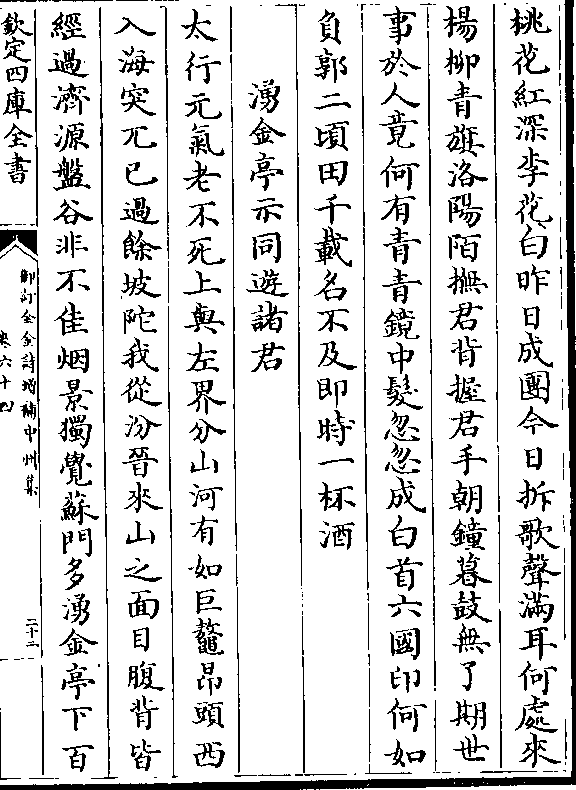 桃花紅深李花白昨日成團今日拆歌聲滿耳何處來
楊柳青旗洛陽陌撫君背握君手朝鐘暮鼓無了期世
事於人竟何有青青鏡中髮忽忽成白首六國印何如
負郭二頃田千載名不及即時一杯酒
湧金亭示同遊諸君
太行元氣老不死上與左界分山河有如巨鼇昂頭西
入海突兀已過餘坡陀我從汾晉來山之面目腹背皆
經過濟源盤谷非不佳烟景獨覺蘇門多湧金亭下百
欽定四庫全書
御訂全金詩增補中州集
卷六十四
二十二